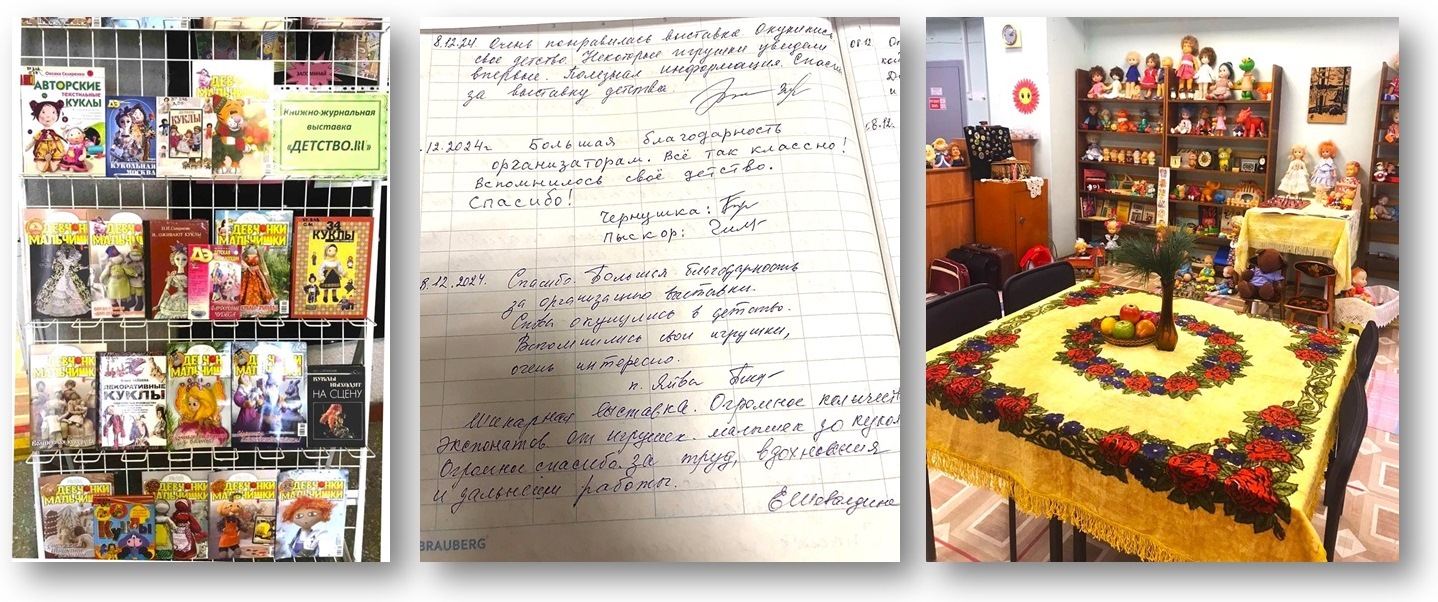 Оксана Скляренко
АВТОРСКИЕ
ТЕКСТИЛЬНЫЕ
КУКЛЫ
КУКОЛЬНАЯ
МОСКВА
КУКЛЫ
Книжно-журнальная
выставка
«ДЕТСТВО.RU»
ДЕВЧОНКИ
МАЛЬЧИШКИ
И ОЖИВАЮТ КУКЛЫ
ДЕВЧОНКИ
МАЛЬЧИШКИ
КУКЛЫ
ДЕВЧОНКИ
МАЛЬЧИШКИ
ДЕКОРАТИВНЫЕ
КУКЛЫ
ДЕВЧОНКИ
МАЛЬЧИШКИ
КУКЛЫ
ВЫХОДЯТ
НА СЦЕНУ
ДЕВЧОНКИ
МАЛЬЧИШКИ
Куклы
ДЕВЧОНКИ
МАЛЬЧИШКИ
8.12.24 Очень понравилась выставка. Окунулись
свое детство. Некоторые игрушки увидели
впервые. Полезная информация. Спасибо
за выставку детства.
.12.2024г Большая благодарность
организаторам. Всё так классно!
Вспомнилось своё детство.
Спасибо!
Чернушка:
Пыскор:
8.12.2024. Спасибо. Большая благодарность
за организацию выставки.
Снова окунулись в детство.
Вспомнились свои игрушки,
очень интересно.
п. Яйва
Шикарная выставка. Огромное количест
экспонатов от игрушек малышек до кукол
Огромное спасибо за труд, вдохновения
и дальнейшей работы.
BRAUBERG
08.12
8.12.